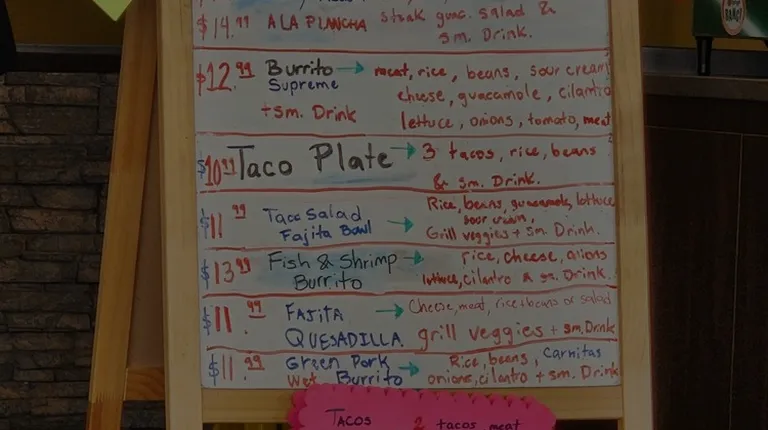 $14.99 A LA PLANCHA steak guac. salad &
sm. Drink.
$12.99 Burrito → meat, rice, beans, sour cream
Supreme cheese, guacamole, cilantro
+ sm. Drink lettuce, onions, tomato, meat
$10.99 Taco Plate → 3 tacos, rice, beans
& sm. Drink.
Rice, beans, guacamole, lettuce
$11.99 Taco Salad → sour cream,
Fajita Bowl Grill veggies + sm. Drink.
$13.99 Fish & Shrimp → rice, cheese, onions
Burrito lettuce, cilantro & sm. Drink.
$11.99 FAJITA → Cheese, meat, rice + beans or salad
QUESADILLA. grill veggies + sm. Drink
$11.99 Green Pork → Rice, beans, Carnitas
Wet Burrito onions, cilantro + sm. Drink
TACOS 2 tacos meat